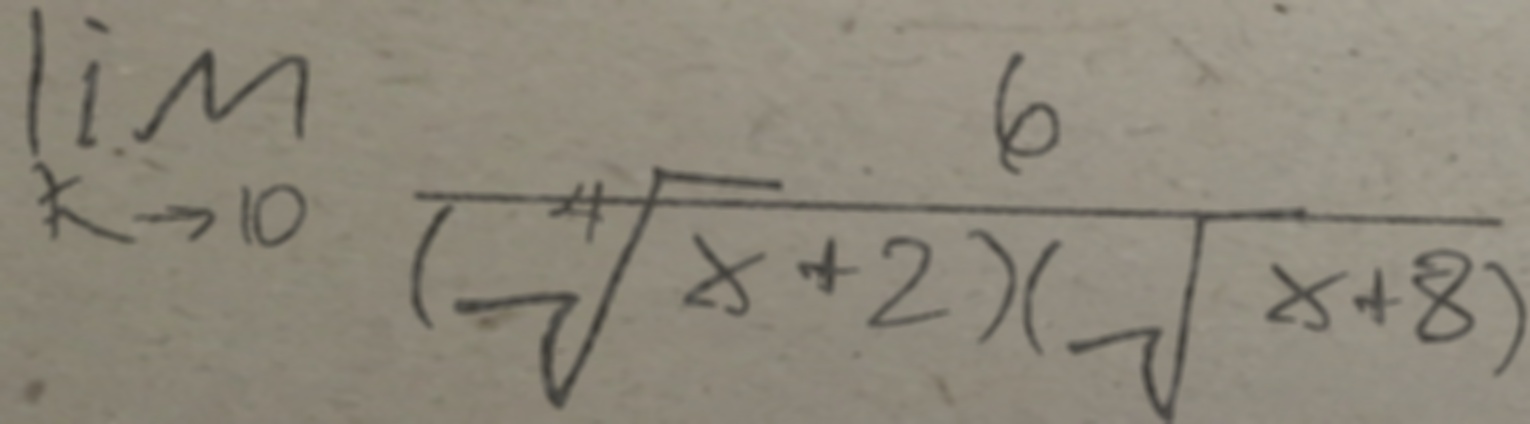 \lim_{x \to 10} \frac{6}{(\sqrt[4]{x+2})(\sqrt{x+8})}